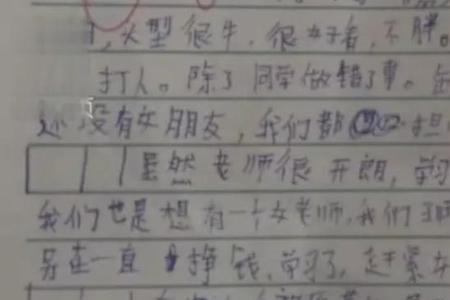 ,大型很牛,很好看,不胖。
打人。除了同学做错了事。
还没有女朋友,我们都担
虽然老师很开朗,学习
我们也是想有一个女老师,我们
另在一直挣钱、学习了,赶紧